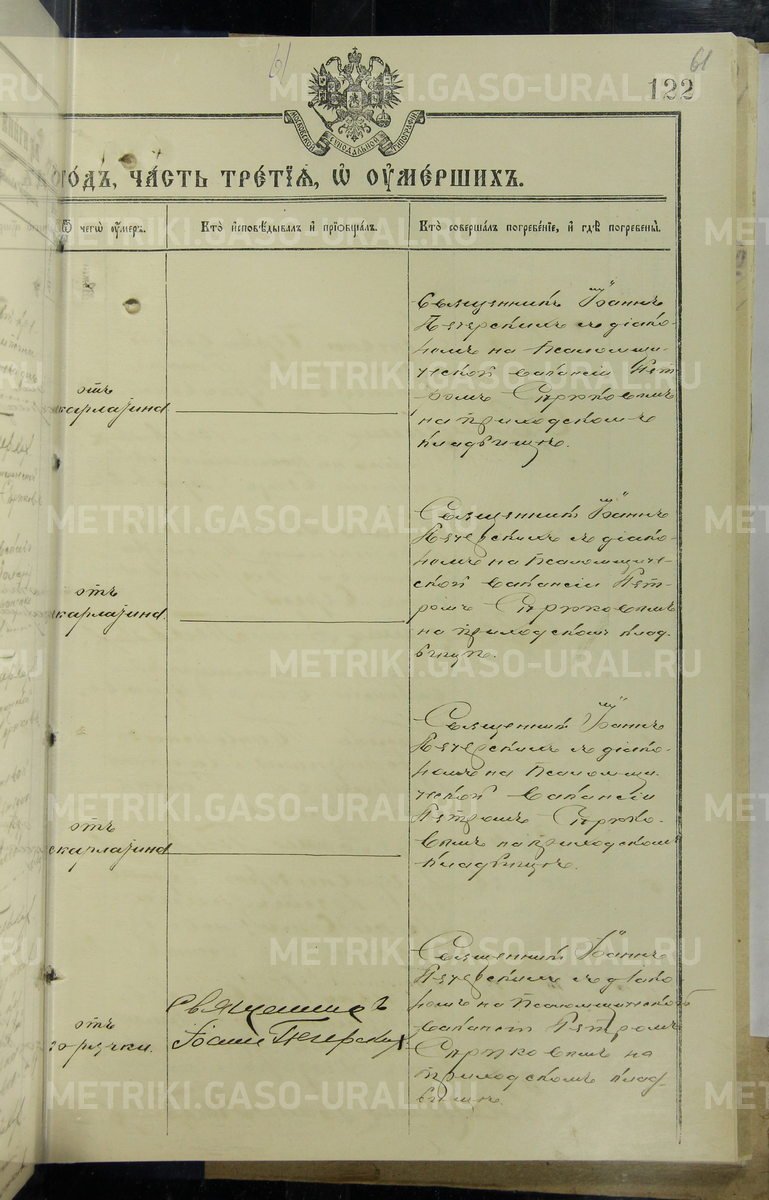 61
61
122
МОСКОВСКОЙ СѴНОДАЛЬНОЙ ТИПОГРАФІИ
ГОДЪ, ЧАСТЬ ТРЕТІЯ, Ѡ ОУМЕРШИХЪ.
Ѿ чегѡ оумеръ.
Кто исповѣдывалъ и пріобщалъ.
Кто совершалъ погребеніе, и гдѣ погребены.
отъ
скарлатина
Священникъ Іоаннъ
Печерскимъ съ діако-
номъ на псаломщи-
ческой вакансіи Пет-
ромъ
на приходскомъ
кладбищѣ.
отъ
скарлатина.
Священникъ Іоаннъ
Печерскимъ съ діако-
номъ на псаломщиче-
ской вакансіи Пет-
ромъ
на приходскомъ клад-
бищѣ.
отъ
скарлатина
Священникъ Іоаннъ
Печерскимъ съ діако-
номъ на псаломщи-
ческой вакансіи
Петромъ
на приходскомъ
кладбищѣ.
отъ
горячки.
Священникъ
Іоаннъ
Священникъ Іоаннъ
Печерскимъ съ діако-
номъ на псаломщической
вакансіи Петромъ
на
приходскомъ клад-
бищѣ.
METRIKI.GASO-URAL.RU